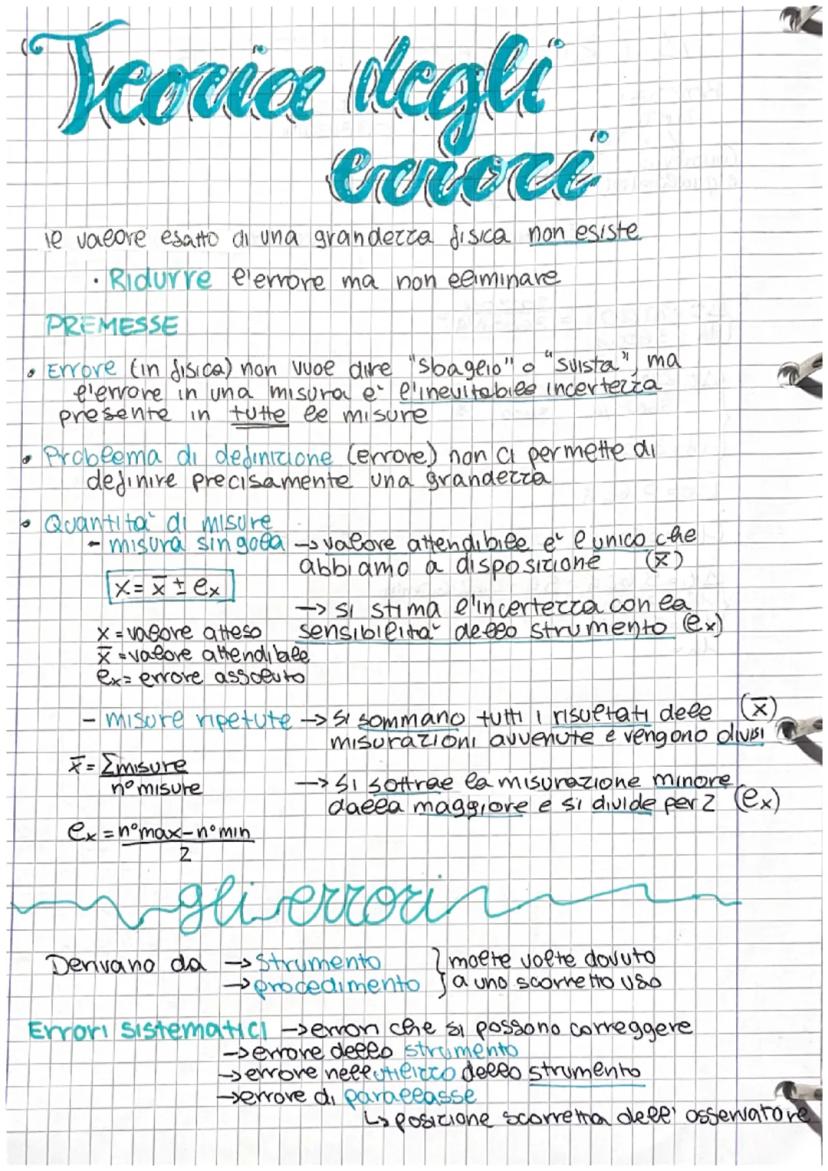 Teoria degli
errori
il valore esatto di una grandezza fisica non esiste
· Ridurre l'errore ma non eliminare
PREMESSE
• Errore (in fisica) non vuole dire "sbaglio" o "svista", ma
l'errore in una misura e' l'inevitabile incertezza
presente in tutte le misure
• Problema di definizione (errore) non ci permette di
definire precisamente una grandezza
• Quantita' di misure
- misura singola → valore attendibile e' l'unico che
abbiamo a disposizione (x̅)
x = x̅ ± eₓ
→ si stima l'incertezza con la
x = valore atteso sensibilita' dello strumento (eₓ)
x̅ = valore attendibile
eₓ = errore assoluto
- misure ripetute → si sommano tutti i risultati delle (x̅)
misurazioni avvenute e vengono divisi
x̅ = Σmisure / n° misure
→ si sottrae la misurazione minore
dalla maggiore e si divide per 2 (eₓ)
eₓ = n°max - n°min / 2
gli errori
Derivano da → strumento } molte volte dovuto
→ procedimento } a uno scorretto uso
Errori sistematici → errori che si possono correggere
→ errore dello strumento
→ errore nell'utilizzo dello strumento
→ errore di parallasse
↳ posizione scorretta dell'osservatore